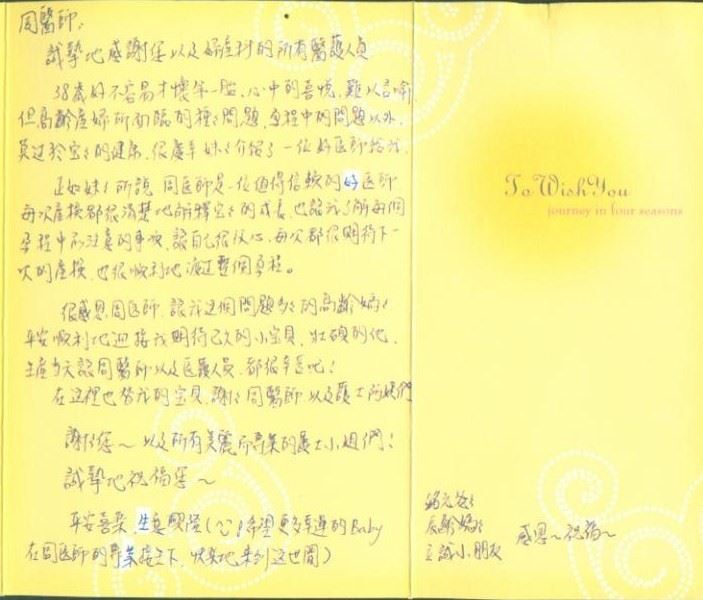 周醫師：
誠摯地感謝您以及婦產科的所有醫護人員
38歲好不容易才懷第一胎，心中的喜悅，難以言喻
但高齡產婦所面臨的種種問題，孕程中的問題以外，
莫過於宝宝的健康，很慶幸妹妹介紹了一位好医師給我。
正如妹妹所說，周医師是一位值得信賴的好医師
每次產檢都很清楚地解釋宝宝的成長，也讓我了解每個
孕程中所注意的事項，讓自己很放心，每次都很期待下一
次的產檢，也很順利地渡過整個孕程。
很感恩周医師，讓我這個問題多多的高齡媽媽
平安順利地迎接我期待已久的小宝貝，壯碩的他，
生產當天讓周醫師以及医護人員，都很辛苦吧！
在这裡也替我的宝貝，謝謝周醫師以及護士阿姨們
謝謝您～以及所有美麗而專業的護士小姐們！
誠摯地祝福您～
平安喜樂，生意興隆(心！希望更多幸運的Baby
在周医師的專業接生下，快樂地來到这世間)
To Wish You
journey in four seasons
爸爸
媽媽
小朋友
感恩～祝福～